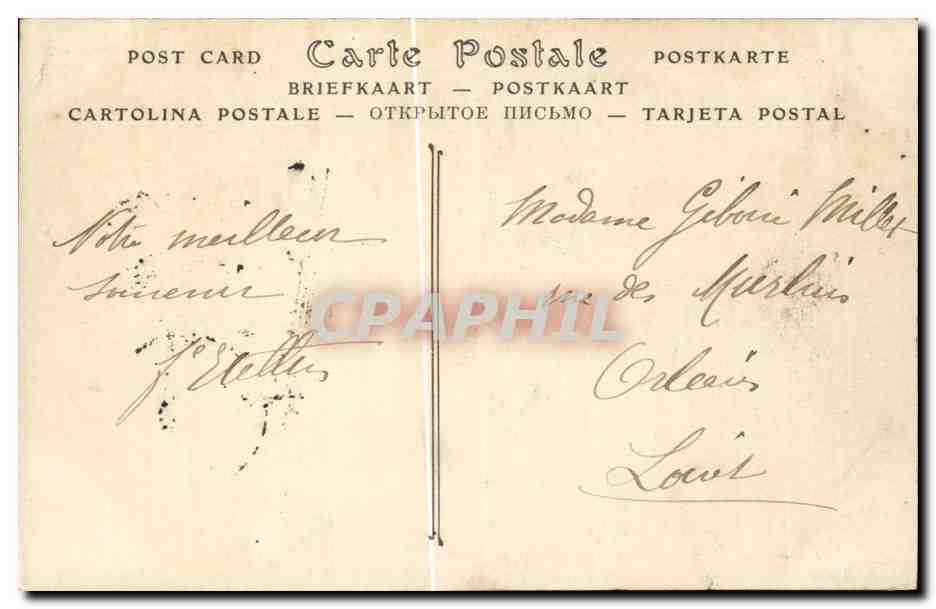 POST CARD Carte Postale POSTKARTE
BRIEFKAART — POSTKAART
CARTOLINA POSTALE — ОТКРЫТОЕ ПИСЬМО — TARJETA POSTAL
Notre meilleur
souvenir
Madame Millet
rue des
Orléans
Loiret
CPAPHIL